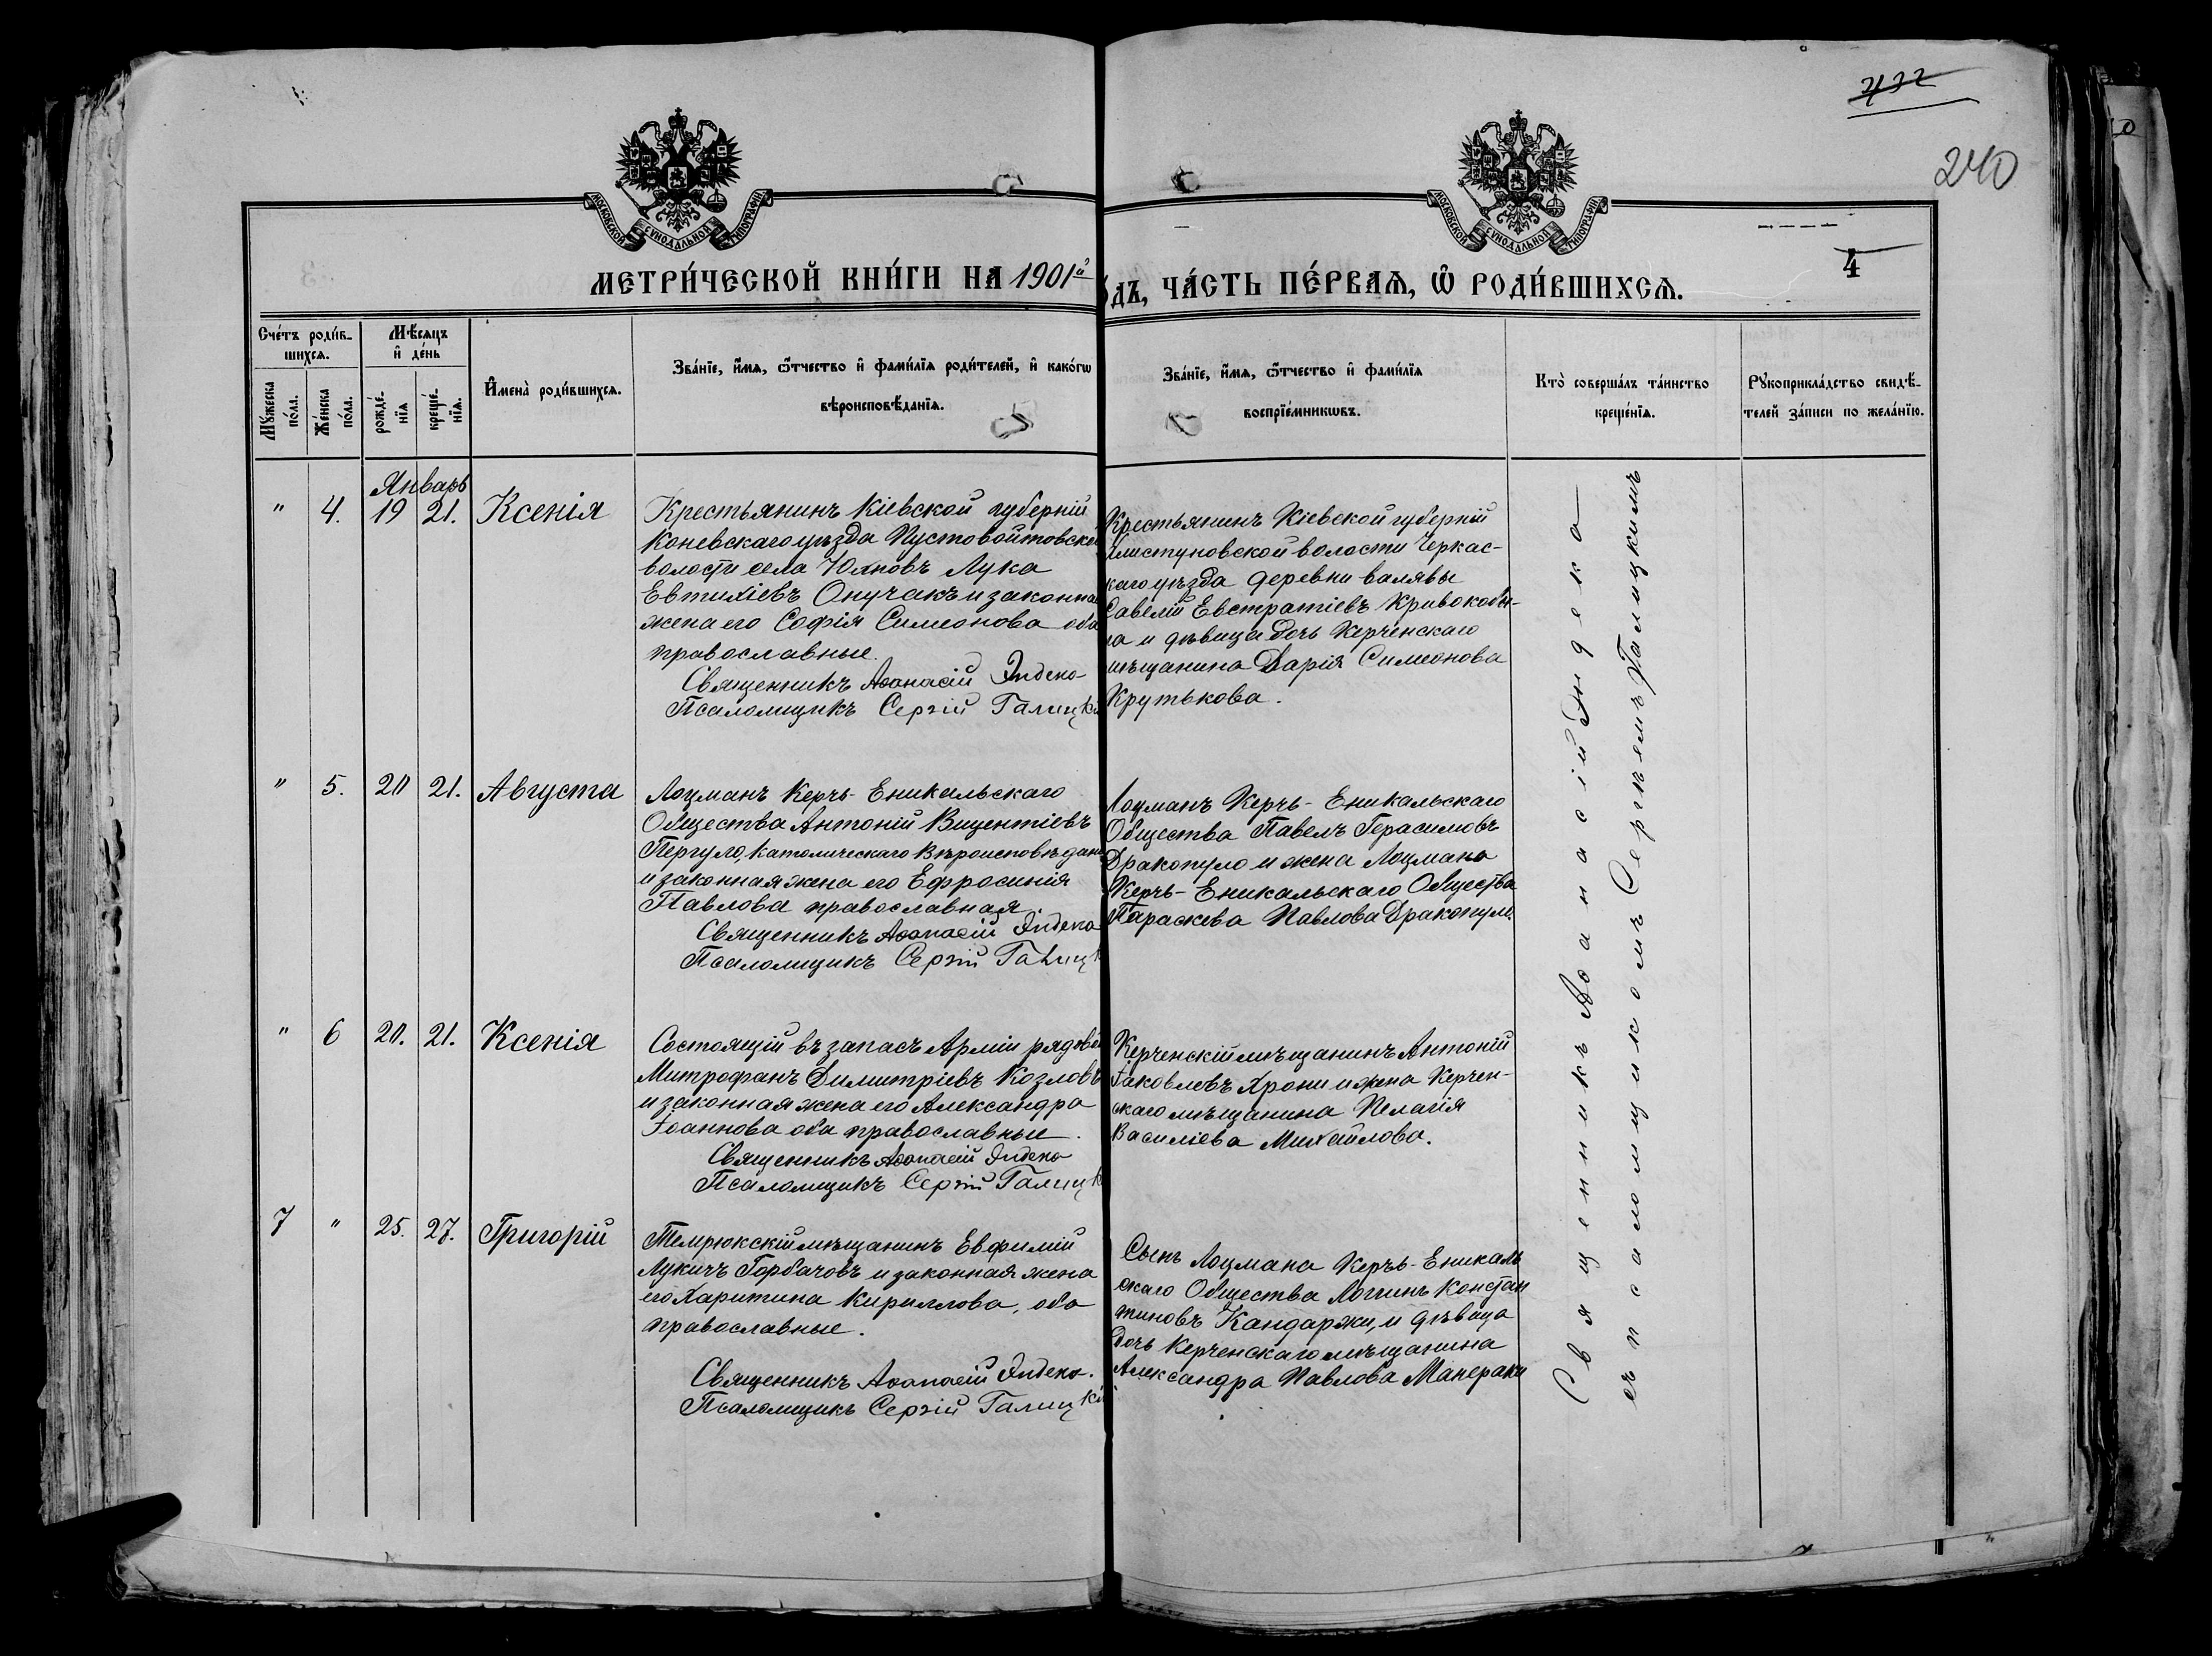 732
240
МОСКОВСКОЙ СѴНОДАЛЬНОЙ ТИПОГРАФІИ
МОСКОВСКОЙ СѴНОДАЛЬНОЙ ТИПОГРАФІИ
МЕТРИ́ЧЕСКОЙ КНИ́ГИ НА 1901й
ДЪ, ЧА́СТЬ ПЕ́РВАѦ, Ѽ РОДИ́ВШИХСѦ.
4
Сче́тъ роди́в-
шихсѧ.
Мꙋ́жеска
по́ла.
Же́нска
по́ла.
Мѣ́сѧцъ
и҆ де́нь
рожде́-
нїѧ
креще́-
нїѧ.
И҆мена̀ роди́вшихсѧ.
Зва́нїе, и҆́мѧ, ѻ҆́тчество и҆ фами́лїѧ роди́телей, и҆ како́гѡ
вѣроисповѣ́данїѧ.
Зва́нїе, и҆́мѧ, ѻ҆́тчество и҆ фами́лїѧ
воспрїе́мникѡвъ.
Кто̀ соверша́лъ та́инство
креще́нїѧ.
Рꙋкоприкла́дство свидѣ́-
телей за́писи по жела́нїю.
Январь
" 4. 19 21. Ксенія
Крестьянинъ Кіевской губерній
Каневскаго уѣзда Пустовойтовской
волости села Юхновъ Лука
Евтихіевъ Онучакъ и законная
жена его Софія Симеонова оба
православные.
Священникъ Аѳанасій Индеко
Псаломщикъ Сергій Галицкій
Крестьянинъ Кіевской губерній
волости Черкас-
каго уѣзда деревни Валявы
Савелій Евстратіевъ Кривокобы-
ла и дѣвица дочь Керченскаго
мѣщанина Дарія Симеонова
Крутькова.
" 5. 20 21. Августа
Лоцманъ Керчь-Еникальскаго
Общества Антоній Вицентіевъ
Пергуло, католическаго Вѣроисповѣдані
и законная жена его Ефросинія
Павлова православная.
Священникъ Аѳанасій Индеко
Псаломщикъ Сергій Галицк
Лоцманъ Керчь-Еникальскаго
Общества Павелъ Герасимовъ
Дракопуло и жена Лоцмана
Керчь-Еникальскаго Общества
Параскева Павлова Дракопуло.
" 6 20. 21. Ксенія
Состоящій въ запасъ Арміи рядовой
Митрофанъ Димитріевъ Козловъ
и законная жена его Александра
Іоаннова оба православные.
Священникъ Аѳанасій Индеко
Псаломщикъ Сергій Галицк
Керченскій мѣщанинъ Антоній
Іаковлевъ Хрони и жена Керчен-
скаго мѣщанина Пелагія
Василіева Михайлова.
7 " 25. 27. Григорій
Темрюкскій мѣщанинъ Евфимій
Лукичъ Горбачовъ и законная жена
его Харитина Кириллова, оба
православные.
Священникъ Аѳанасій Индеко.
Псаломщикъ Сергій Галицкій
Сынъ Лоцмана Керчь-Еникаль
скаго Общества Логгинъ Констан
тиновъ Кандаржи, и дѣвица
дочь Керченскаго мѣщанина
Александра Павлова Манераки
Священникъ Аѳанасій Индека
съ псаломщикомъ Сергѣемъ Галицкимъ